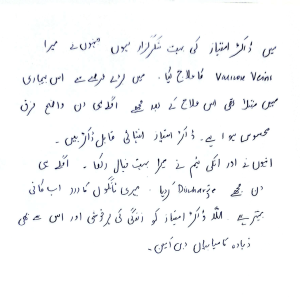 میں ڈاکٹر امتیاز کی بہت شکرگزار ہوں جنہوں نے میرا
Varicose Veins کا علاج کیا۔ میں لمبے عرصے سے اس بیماری
میں مبتلا تھی اس علاج کے بعد مجھے اگلے ہی دن واضح فرق
محسوس ہوا ہے۔ ڈاکٹر امتیاز انتہائی قابل ڈاکٹر ہیں۔
انہوں نے اور انکی ٹیم نے میرا بہت خیال رکھا۔ اگلے ہی
دن مجھے Discharge کر دیا۔ میری ٹانگوں کا درد اب کافی
بہتر ہے۔ اللہ ڈاکٹر امتیاز کو زندگی کی ہر خوشی اور اس سے بھی
زیادہ کامیابیاں دیں آمین۔